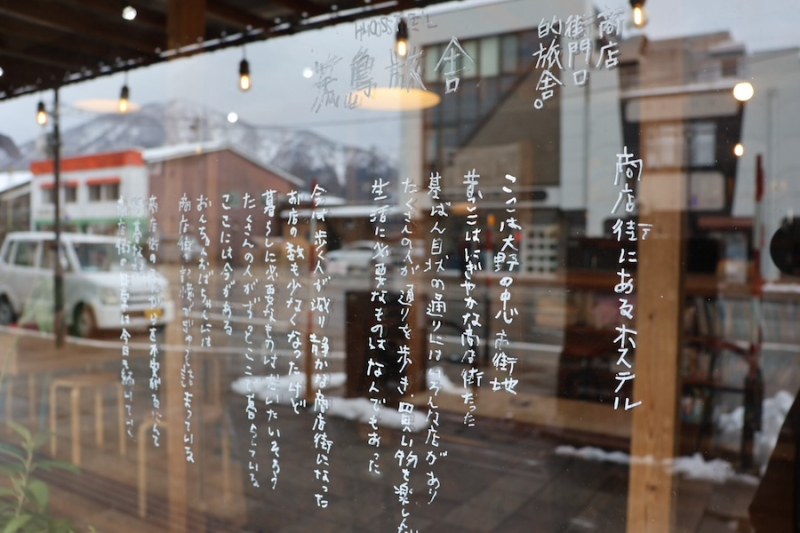 HOSTEL
荒島旅舎
商店
街門口
的旅舎。
商店街にあるホステル
ここは大野の中心市街地
昔ここはにぎやかな商店街だった
碁ばん目状の通りにはいろんな店があり
たくさんの人が通りを歩き、買い物を楽しん
生活に必要なものはなんでもあった
今は歩く人が減り静かな商店街になった
お店の数も少なくなったけど
暮らしに必要なものはだいたいそろう
たくさんの人がずっとここで暮らしている
ここには今がある
おじちゃんおばちゃんには
商店街の記憶が
商店街の
今日も続いてく